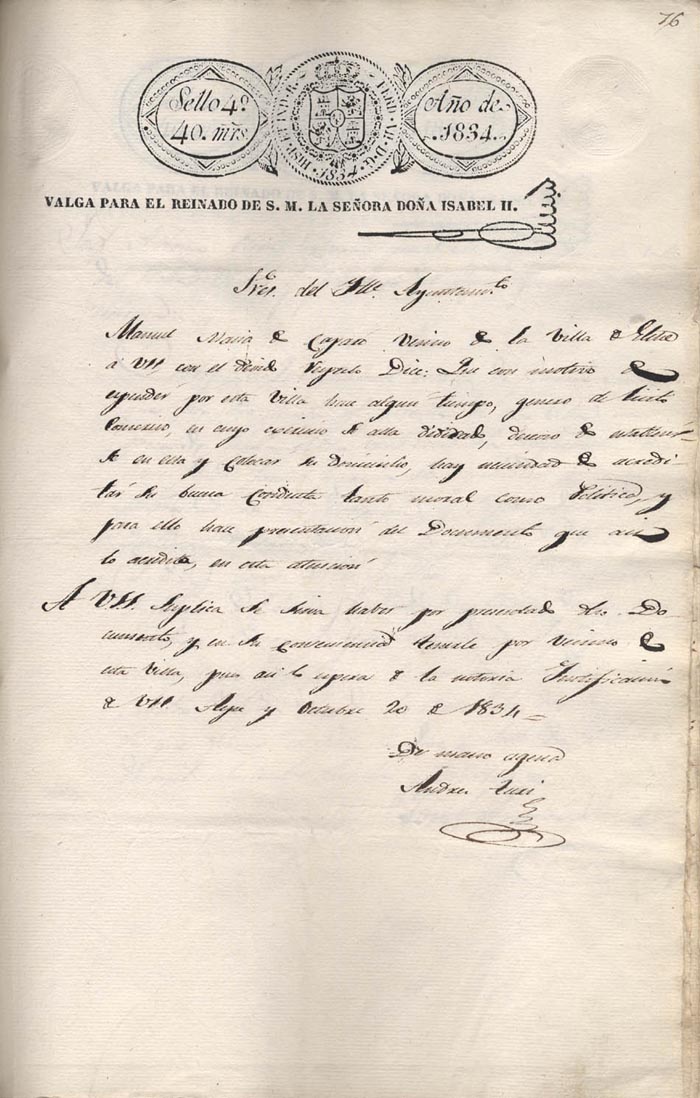 76
Sello 4º
40. mrs
HISP. ET IND. R. FERD. VII. D. G. 1834.
Año de
1834.
VALGA PARA EL REINADO DE S. M. LA SEÑORA DOÑA ISABEL II.
Sres. del Ille. Ayuntamto
Manuel Maria de Vecino de la Villa de Elda
a VSS con el devido respeto Dice: Que con motivo de
espender por esta Villa hace algun tiempo, genero de
Comercio, en cuyo exercicio se alla dedicado, deseoso de
se en esta y colocar su domicilio, hay necesidad de acredi
tar su buena conducta tanto moral como Politica, y
para ello hace presentacion del Documento que asi
lo acredita, en esta atencion
A VSS. suplica se sirva haber por presentado dho. Do
cumento, y en su consecuencia por Vecino de
esta Villa, pues asi lo espera de la notoria Justificacion
de VSS y Octubre 20 de 1834=
De mano agena
Andres